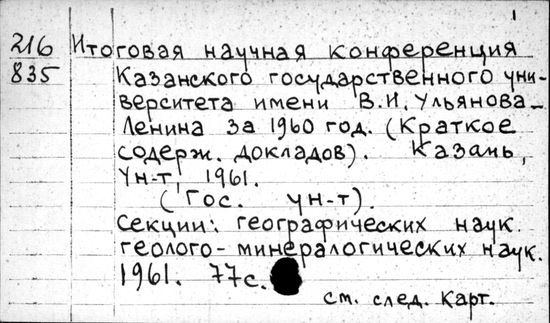 1
216 Итоговая научная конференция
835 Казанского государственного уни-
верситета имени В.И. Ульянова-
Ленина за 1960 год. (Краткое
содерж. докладов). Казань,
Ун-т, 1961.
(Гос. ун-т).
Секции: географических наук.
геолого-минералогических наук.
1961. 77с.
см. след. карт.